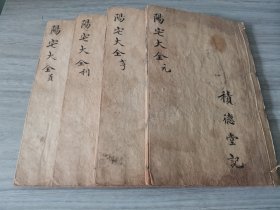 陽宅大全元
積德堂記
陽宅大全亨
陽宅大全利
陽宅大全貞